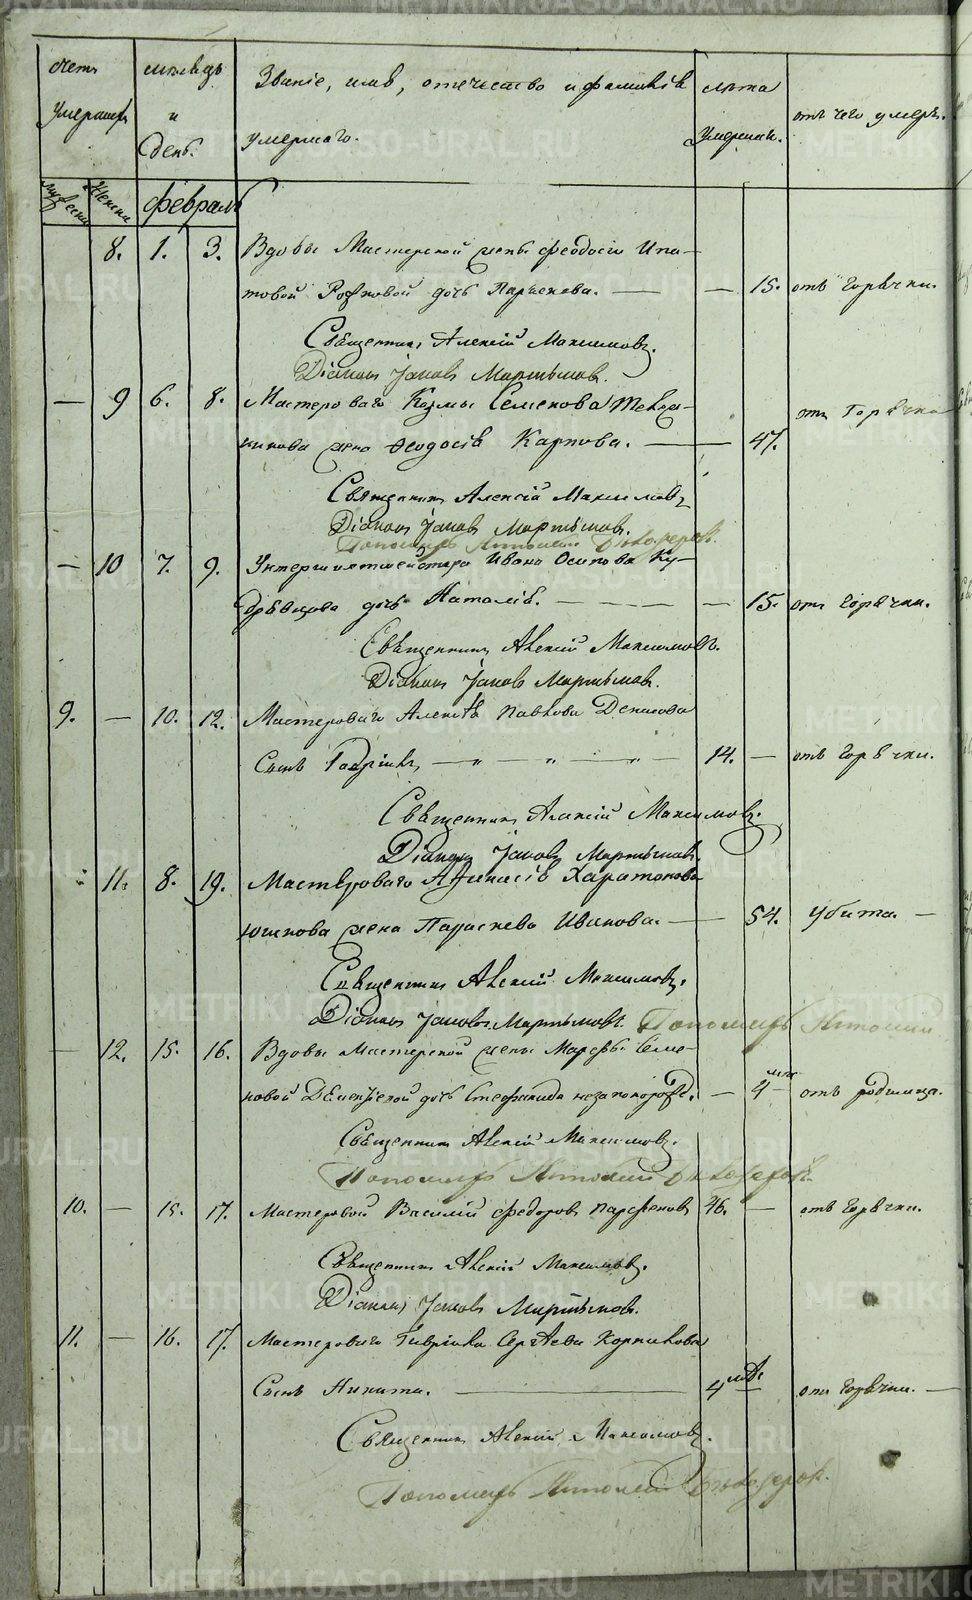 Счетъ умершихъ
мѣсяцъ и день.
Званіе, имя, отечество и фамилія умершаго.
лѣта умершихъ.
отъ чего умеръ.
мужеска
женска
февраль
8. 1. 3. Вдовы Мастерской жены Феодосіи Ипа-
товой дочь Параскева. — — 15. отъ Горячки.
Священникъ Алексій Максимовъ.
Діаконъ Іаковъ Мартыновъ.
— 9 6. 8. Мастероваго Козмы Семенова
жена Феодосія Карпова. — 47. отъ Горячки
Священникъ Алексій Максимовъ
Діаконъ Іаковъ Мартыновъ.
Пономарь Антоній
— 10 7. 9. Унтершихтмейстера Ивана Осипова Ку-
дрявцова дочь Наталія. — — — — 15. отъ Горячки.
Священникъ Алексій Максимовъ.
Діаконъ Іаковъ Мартыновъ.
9. — 10. 12. Мастероваго Алексѣя Павлова Денисова
Сынъ Гавріилъ — „ — „ — „ — 14. — отъ Горячки.
Священникъ Алексій Максимовъ.
Діаконъ Іаковъ Мартыновъ.
11. 8. 19. Мастероваго Афанасія Харитонова
Юшкова жена Параскева Иванова. — — 54. Убита. —
Священникъ Алексій Максимовъ.
Діаконъ Іаковъ Мартыновъ. Пономарь Антоній
— 12. 15. 16. Вдовы Мастерской жены Марфы Семе-
новой дочь Стефанида — 4 отъ родимца.
Священникъ Алексій Максимовъ.
Пономарь Антоній
10. — 15. 17. Мастеровой Василій Федоровъ Парфеновъ 46. — отъ Горячки.
Священникъ Алексій Максимовъ.
Діаконъ Іаковъ Мартыновъ.
11. — 16. 17. Мастероваго Гавріила Сергѣева Корнилова
Сынъ Никита. — 4 — отъ Горячки. —
Священникъ Алексій Максимовъ.
Пономарь Антоній
METRIKI.GASO-URAL.RU